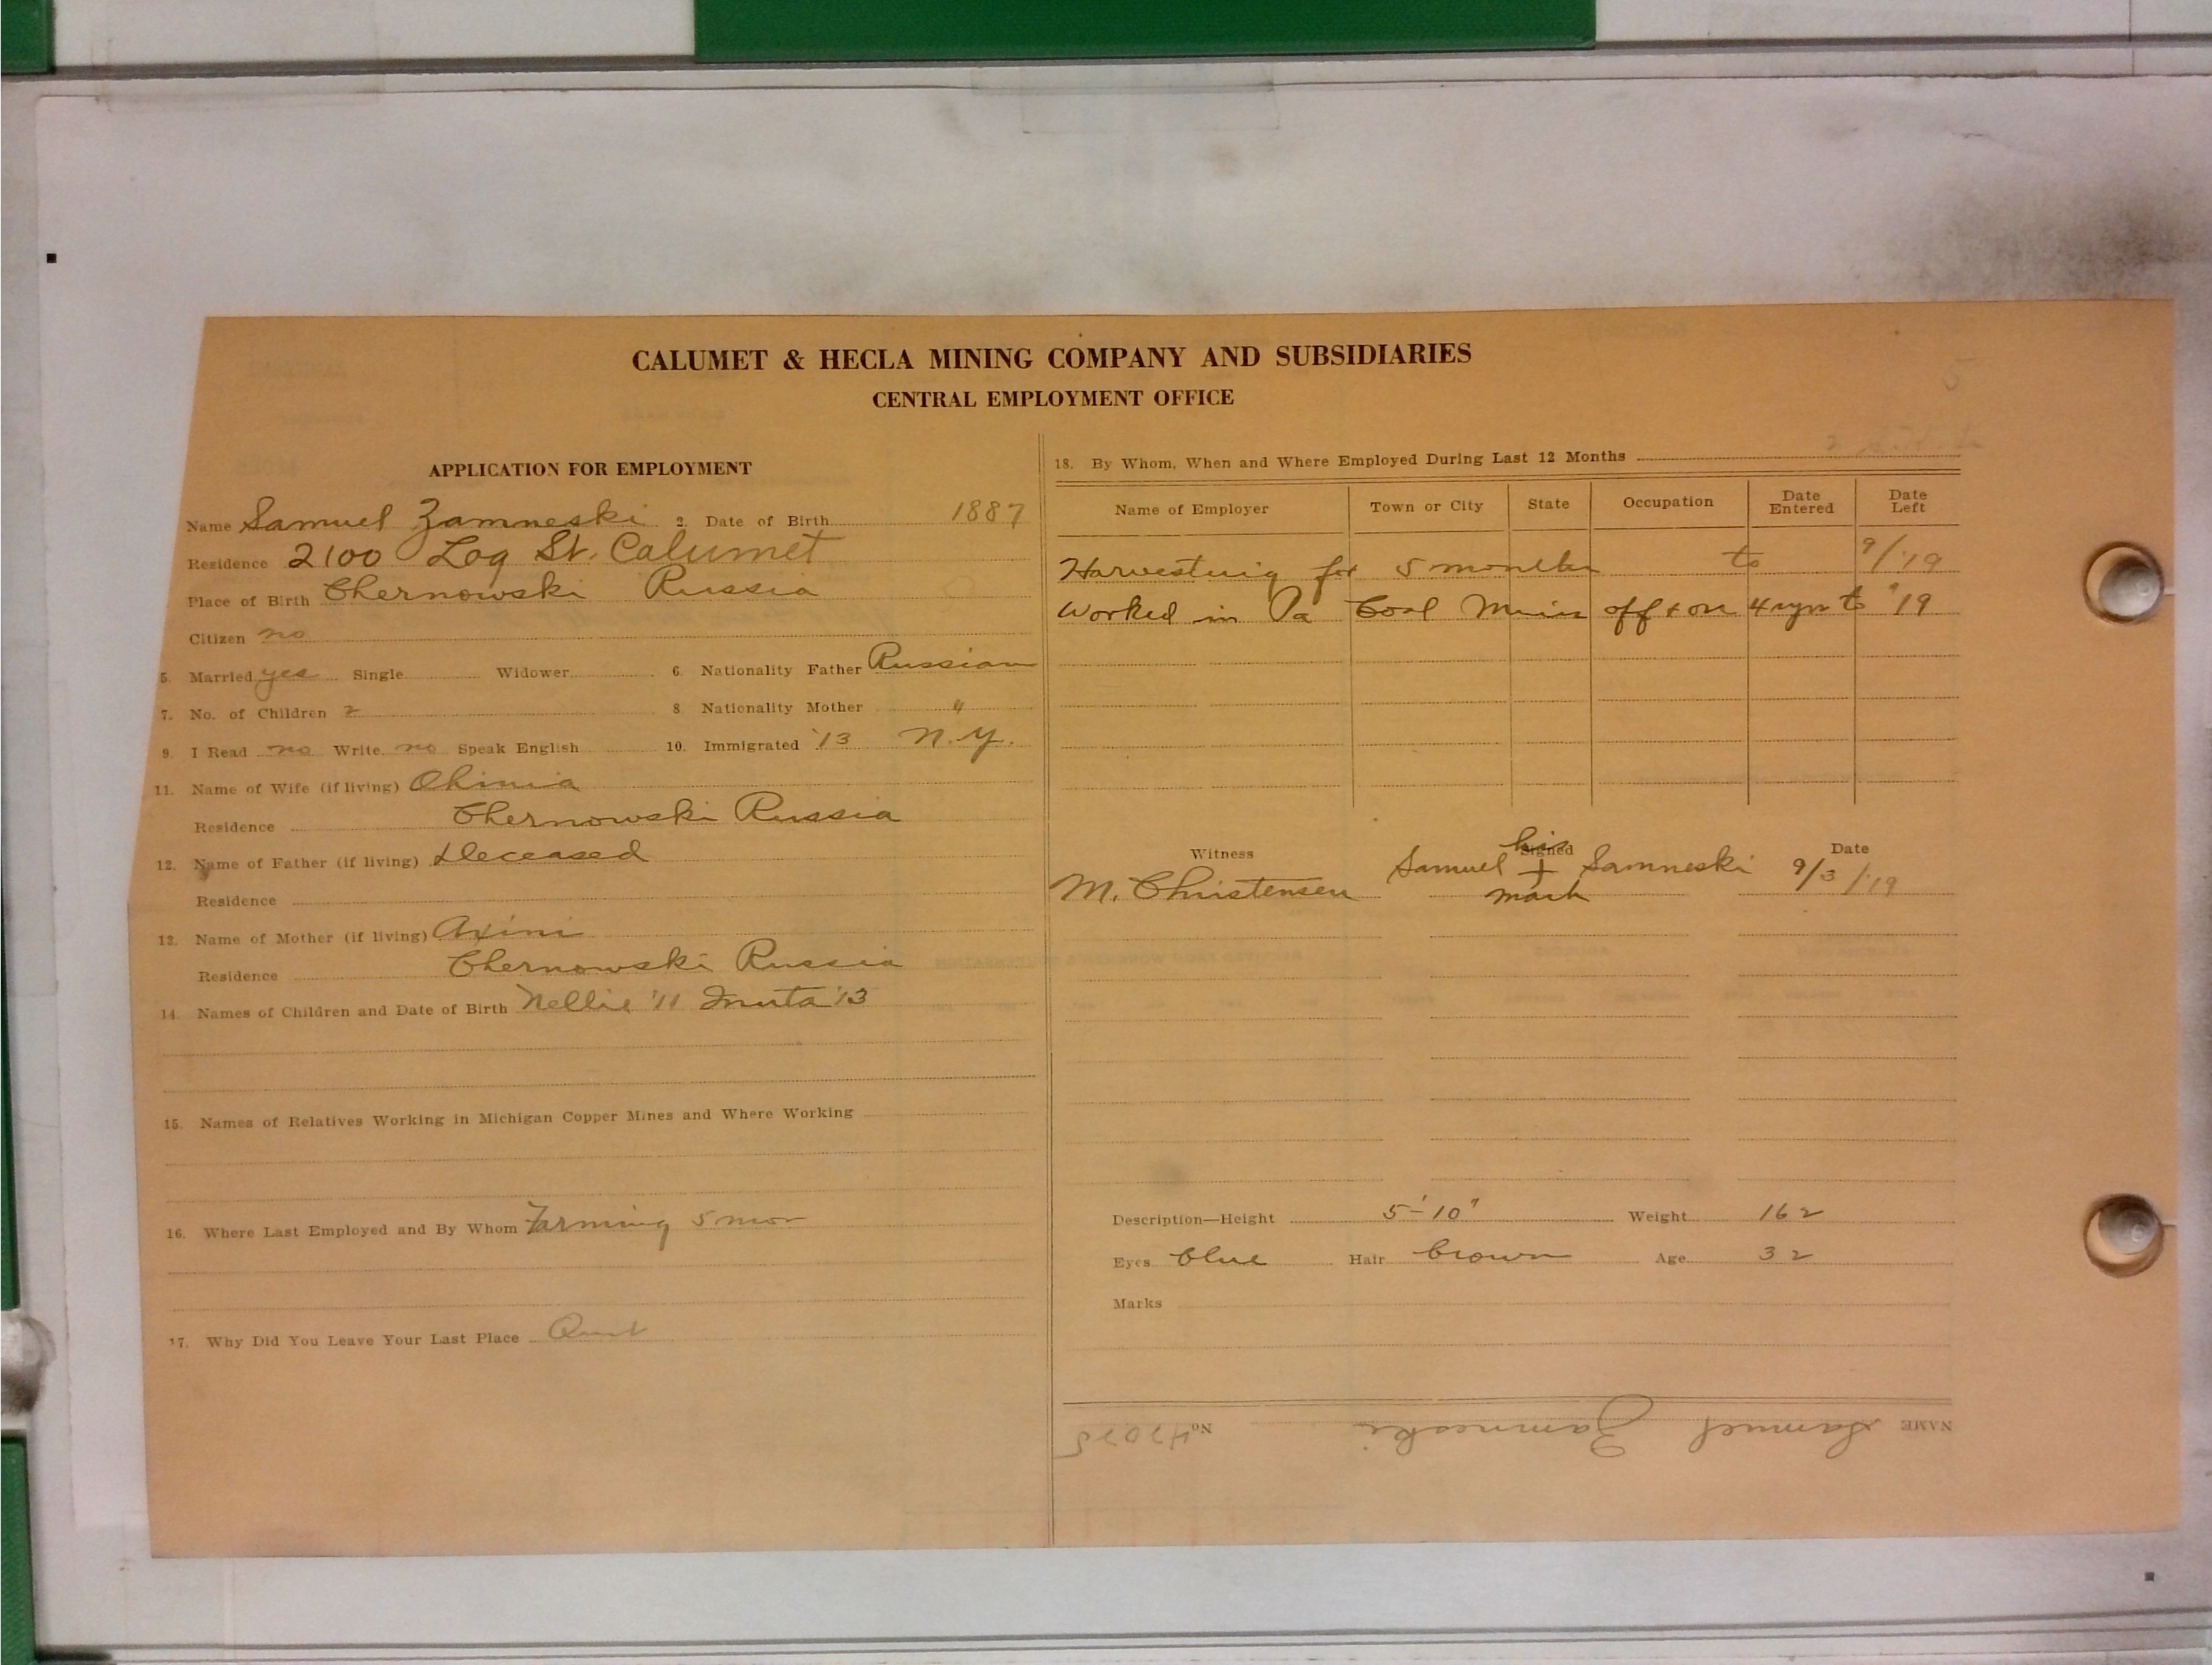 CALUMET & HECLA MINING COMPANY AND SUBSIDIARIES
CENTRAL EMPLOYMENT OFFICE
APPLICATION FOR EMPLOYMENT
Name Samuel Zamneski 2. Date of Birth 1887
Residence 2100 Log St. Calumet
Place of Birth Chernowski Russia
Citizen no
5. Married yes Single Widower 6. Nationality Father Russian
7. No. of Children 2 8. Nationality Mother "
9. I Read no Write no Speak English 10. Immigrated '13 N.Y.
11. Name of Wife (if living) Ohinia
Residence Chernowski Russia
12. Name of Father (if living) Deceased
Residence
13. Name of Mother (if living) Axini
Residence Chernowski Russia
14. Names of Children and Date of Birth Nellie '11 '13
15. Names of Relatives Working in Michigan Copper Mines and Where Working
16. Where Last Employed and By Whom Farming 5 mos
17. Why Did You Leave Your Last Place Quit
18. By Whom, When and Where Employed During Last 12 Months
Name of Employer Town or City State Occupation Date Entered Date Left
Harvesting for 5 months to 9/'19
Worked in Pa Coal Mines off + on 4 yrs to '19
Witness Signed Date
his
M. Christensen Samuel + Samneski 9/3/'19
mark
Description—Height 5'-10" Weight 162
Eyes blue Hair brown Age 32
Marks
NAME Samuel Zamneski No. 47025